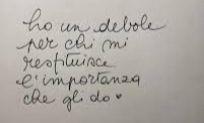 ho un debole
per chi mi
restituisce
l'importanza
che gli do